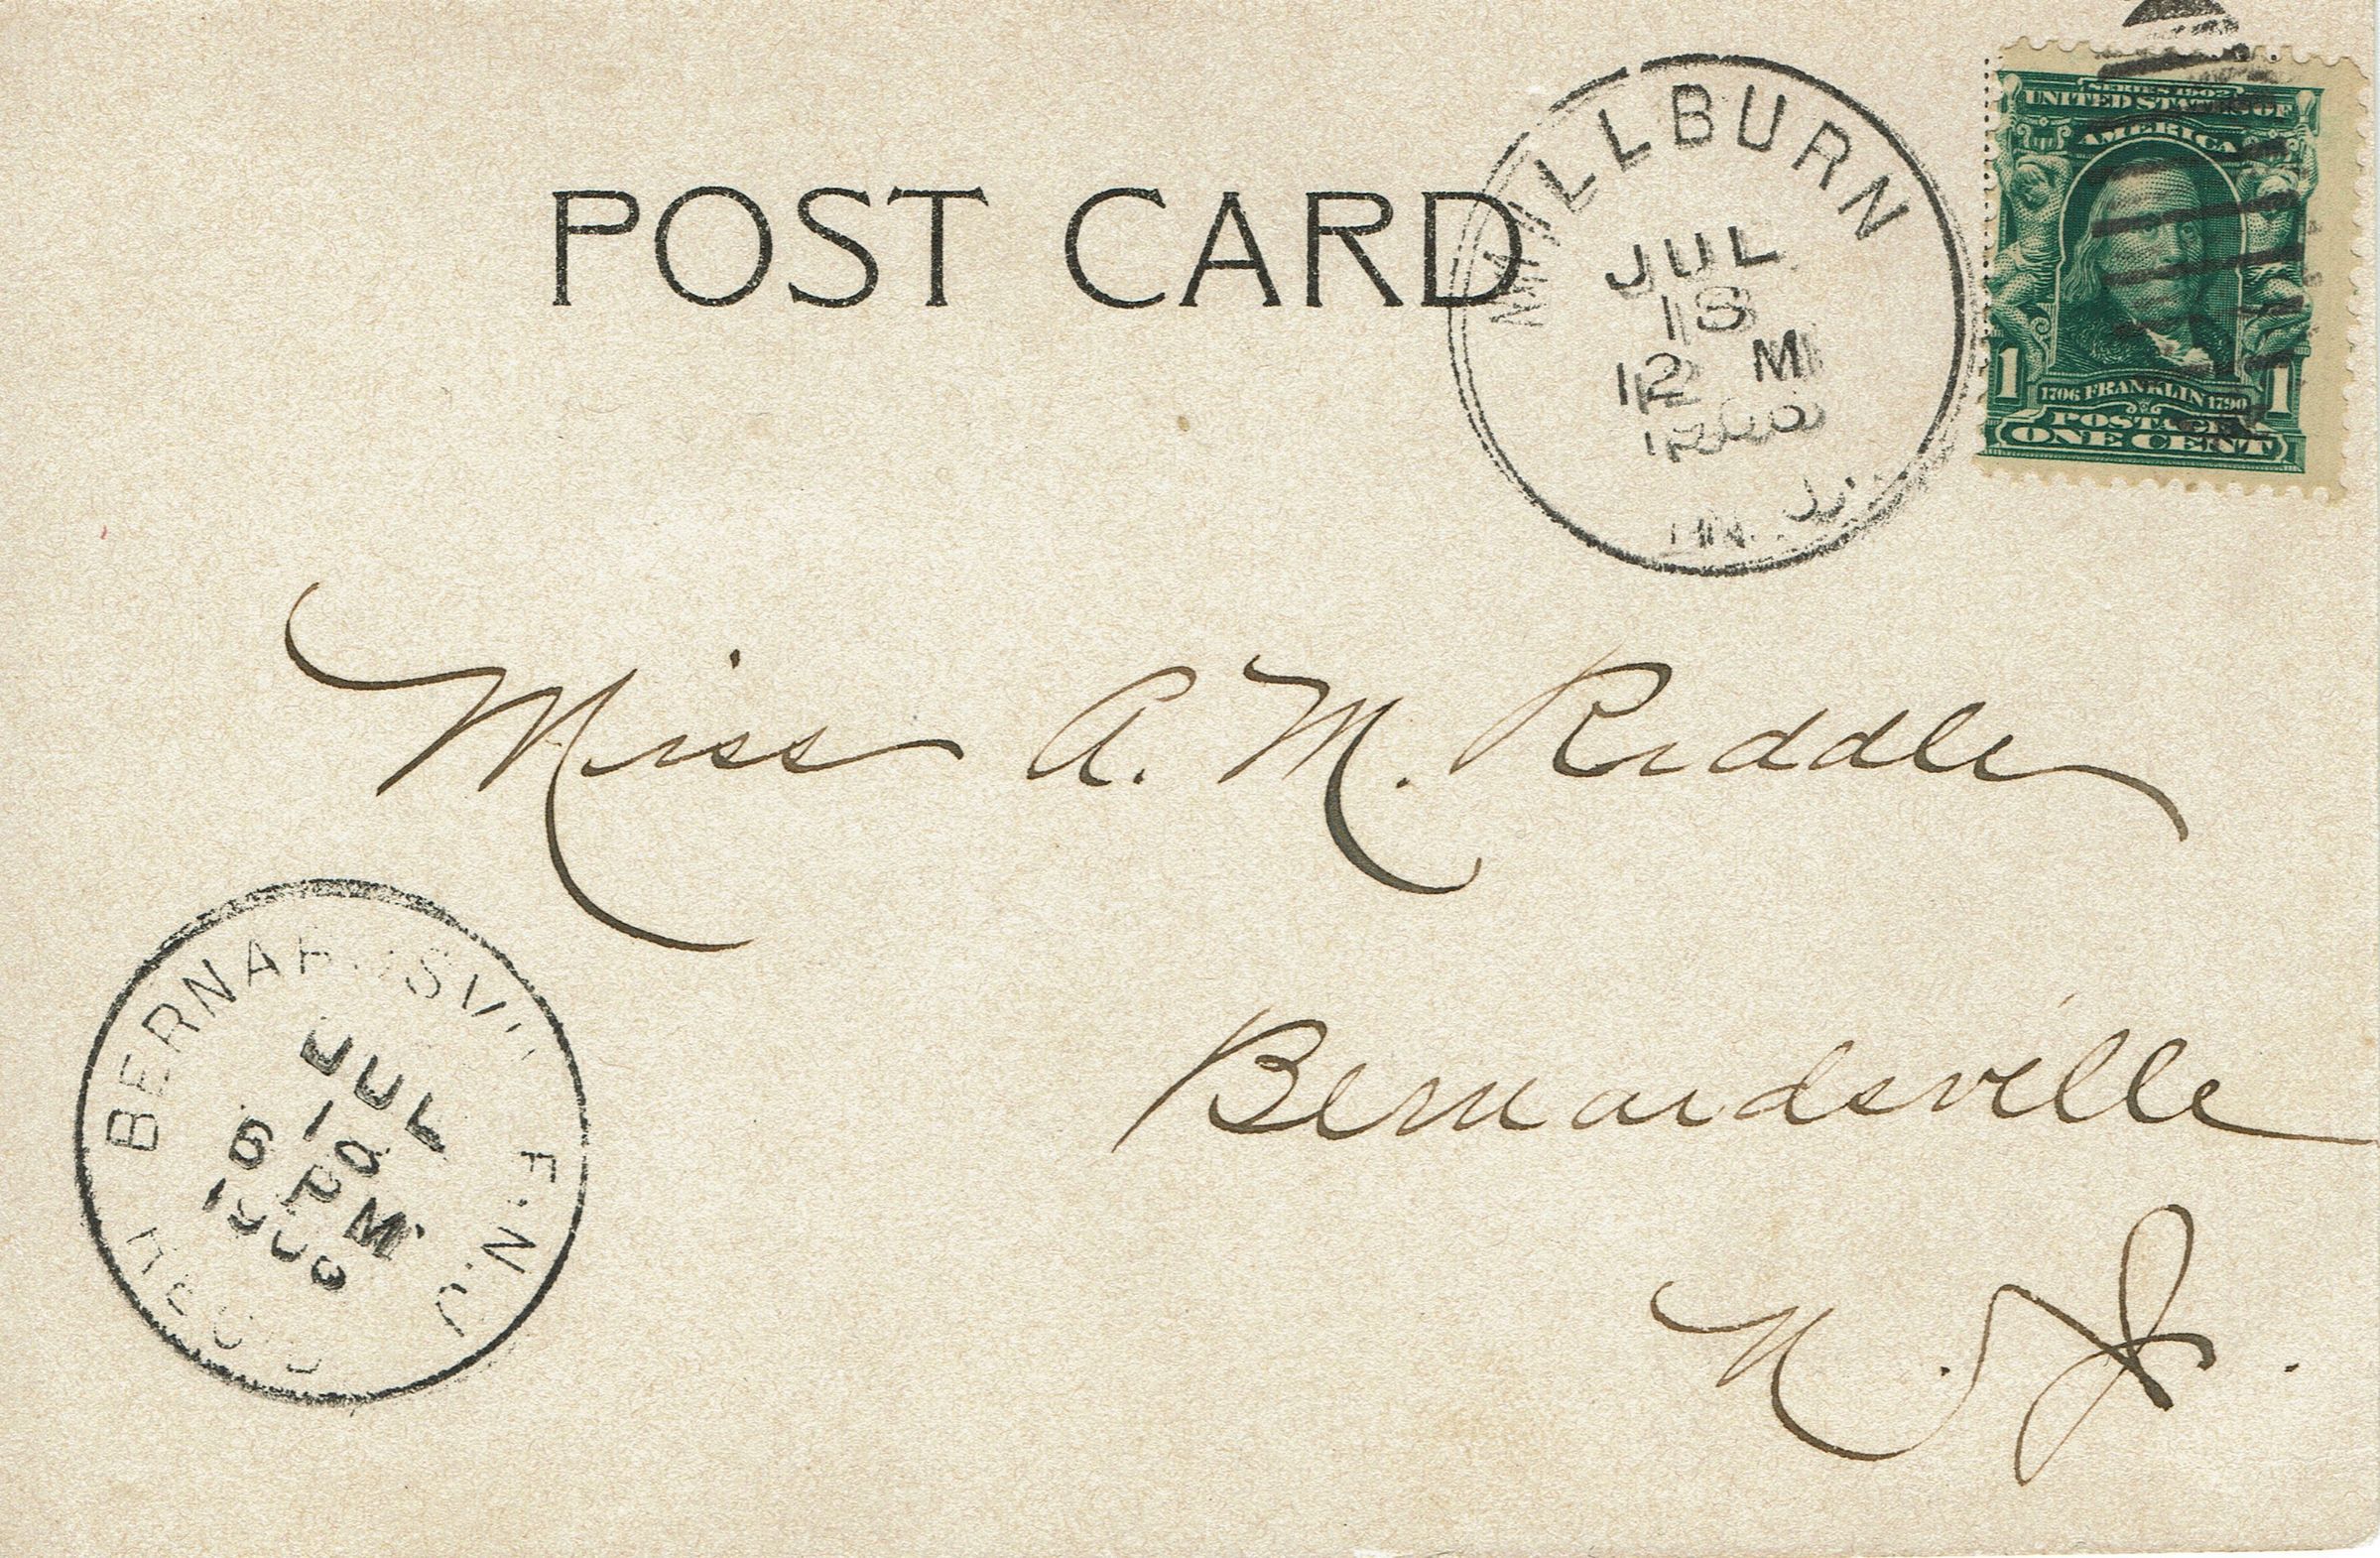 POST CARD
MILLBURN
JUL
18
12 M
N.J.
SERIES 1902
UNITED STATES OF
AMERICA
1706 FRANKLIN 1790
1 1
POSTAGE
ONE CENT
Miss A. M. Riddle
Bernardsville
N. J.
BERNARDSVILLE N.J.
JUL
6 PM